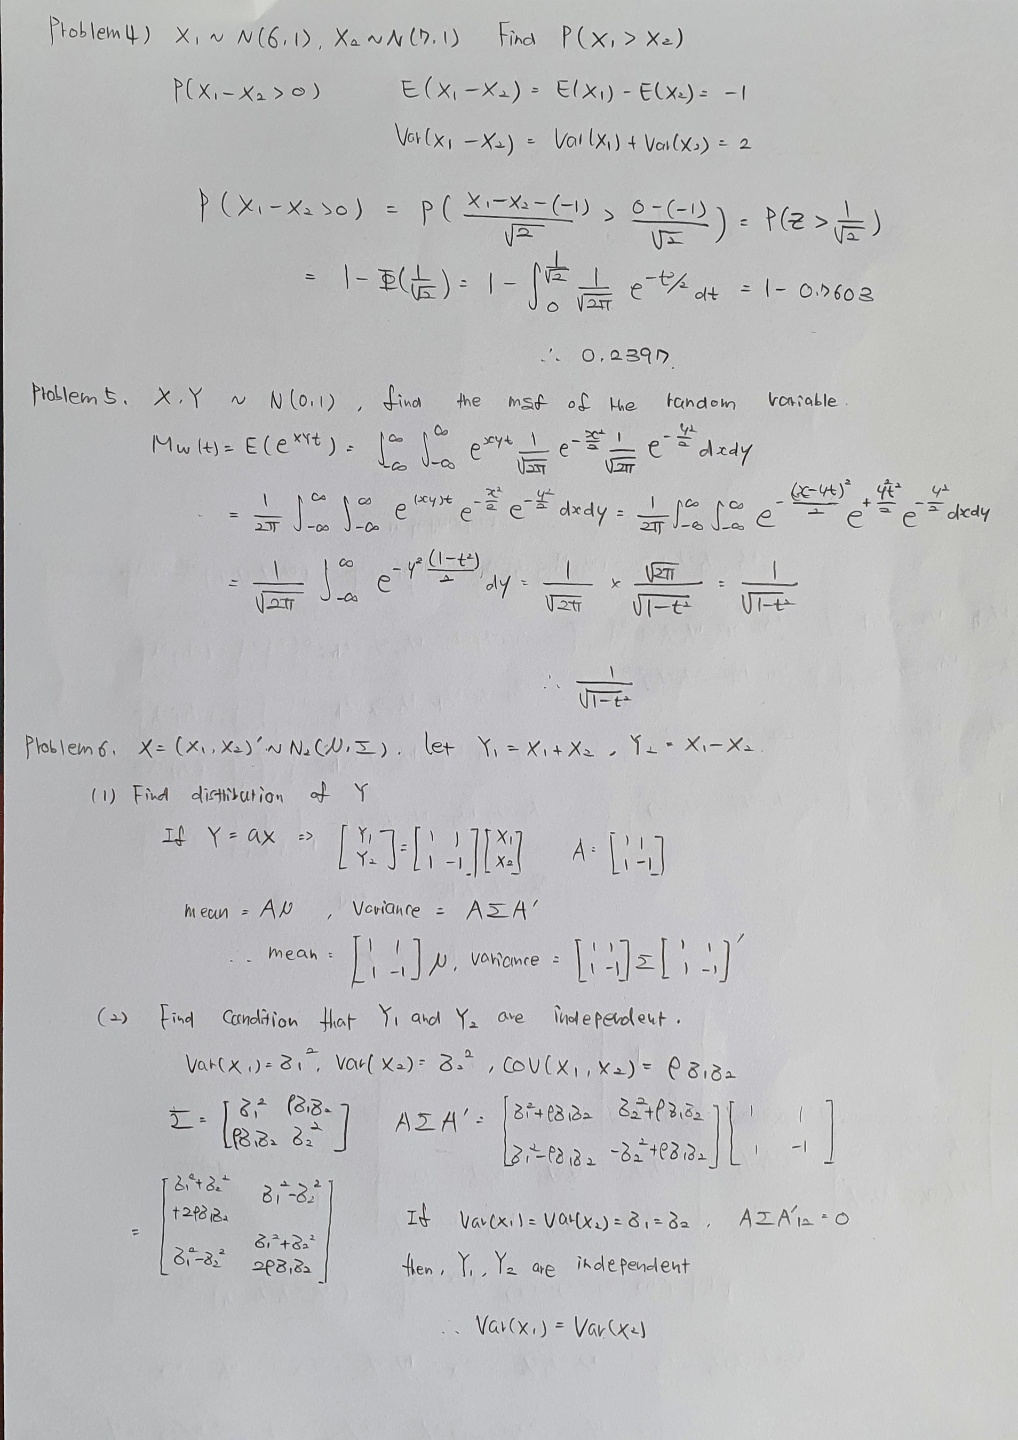 Problem 4) X₁ ~ N(6,1), X₂ ~ N(7,1) Find P(X₁ > X₂)
P(X₁-X₂>0) E(X₁-X₂) = E(X₁) - E(X₂) = -1
Var(X₁-X₂) = Var(X₁) + Var(X₂) = 2
P(X₁-X₂>0) = P( (X₁-X₂-(-1))/√2 > (0-(-1))/√2 ) = P(Z > 1/√2)
= 1-Φ(1/√2) = 1 - ∫₀^(1/√2) 1/√2π e^(-t/2) dt = 1-0.7603
∴ 0.2397.
Problem 5. X.Y ~ N(0,1), find the mgf of the random variable.
Mw(t) = E(e^(XYt)) = ∫_-∞^∞ ∫_-∞^∞ e^(xyt) 1/√2π e^(-x²/2) 1/√2π e^(-y²/2) dxdy
= 1/2π ∫_-∞^∞ ∫_-∞^∞ e^((xy)t) e^(-x²/2) e^(-y²/2) dxdy = 1/2π ∫_-∞^∞ ∫_-∞^∞ e^(-(x-yt)²/2) e^(+y²t²/2) e^(-y²/2) dxdy
= 1/√2π ∫_-∞^∞ e^(-y²(1-t²)/2) dy = 1/√2π × √2π/√1-t² = 1/√1-t²
∴ 1/√1-t²
Problem 6. X = (X₁, X₂)' ~ N₂(μ, Σ). let Y₁ = X₁+X₂, Y₂ = X₁-X₂.
(1) Find distribution of Y
If Y = ax => [Y₁ Y₂] = [1 1 1 -1] [X₁ X₂] A = [1 1 1 -1]
mean = Aμ, Variance = AΣA'
∴ mean = [1 1 1 -1] μ, variance = [1 1 1 -1] Σ [1 1 1 -1]'
(2) Find Condition that Y₁ and Y₂ are independent.
Var(X₁) = σ₁², Var(X₂) = σ₂², COV(X₁, X₂) = ρσ₁σ₂
Σ = [σ₁² ρσ₁σ₂ ρσ₁σ₂ σ₂²] AΣA' = [σ₁²+ρσ₁σ₂ σ₂²+ρσ₁σ₂ σ₁²-ρσ₁σ₂ -σ₂²+ρσ₁σ₂] [1 1 1 -1]
= [σ₁²+σ₂²+2ρσ₁σ₂ σ₁²-σ₂² σ₁²-σ₂² σ₁²+σ₂² 2ρσ₁σ₂]
If Var(X₁) = Var(X₂) = σ₁ = σ₂, AΣA'₁₂ = 0
then, Y₁, Y₂ are independent
∴ Var(X₁) = Var(X₂)